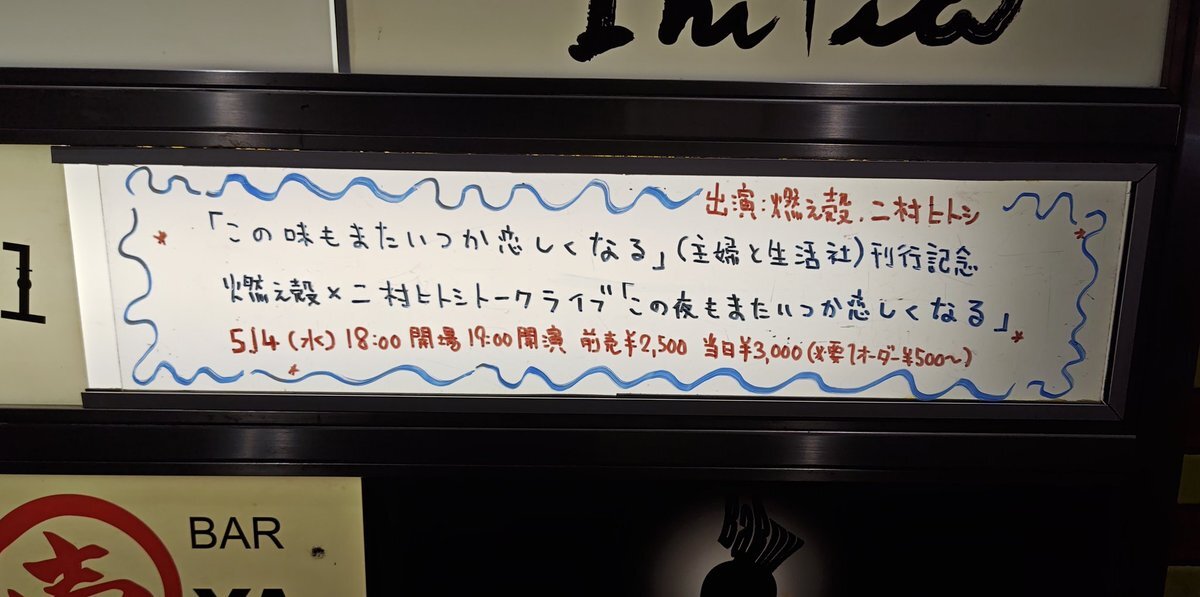 Initia
出演:燃え殻.二村ヒトシ
「この味もまたいつか恋しくなる」(主婦と生活社)刊行記念
燃え殻×二村ヒトシトークライブ「この夜もまたいつか恋しくなる」
5/14(水)18:00開場19:00開演 前売¥2,500 当日¥3,000(※要1オーダー¥500~)
1
BAR